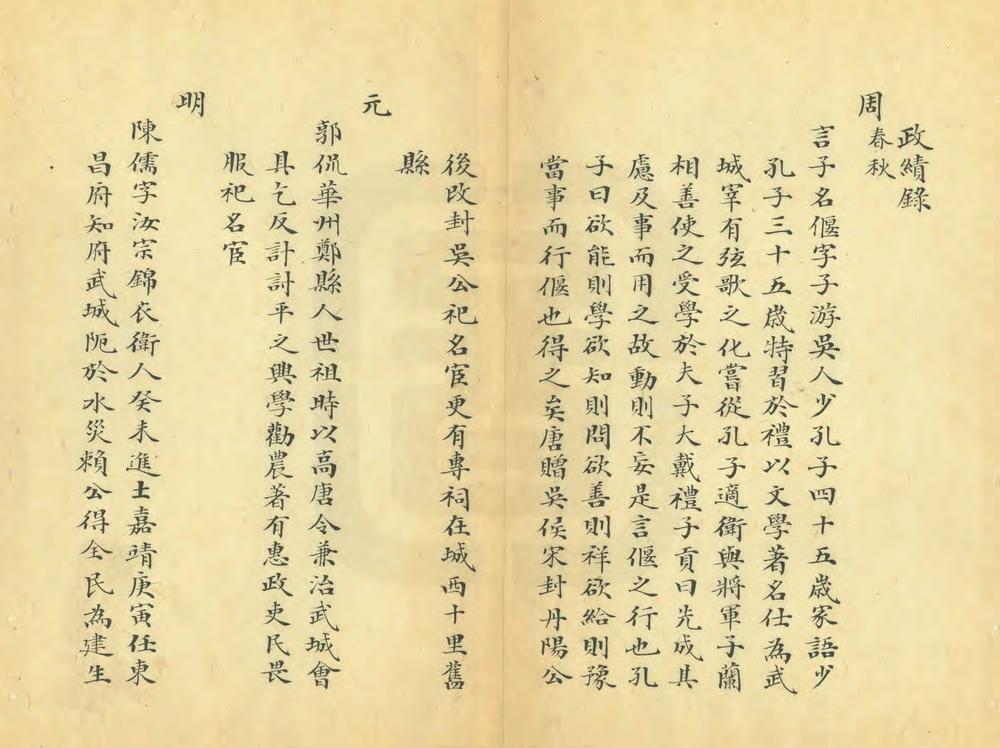 政績錄
周
春秋
言子名偃字子游吳人少孔子四十五歲家語少
孔子三十五歲特習於禮以文學著名仕為武
城宰有弦歌之化嘗從孔子適衛與將軍子蘭
相善使之受學於夫子大戴禮子貢曰先成其
慮及事而用之故動則不妄是言偃之行也孔
子曰欲能則學欲知則問欲善則祥欲給則豫
當事而行偃也得之矣唐贈吳侯宋封丹陽公
後改封吳公祀名宦更有專祠在城西十里舊
縣
元
郭侃華州鄭縣人世祖時以高唐令兼治武城會
具乞反計討平之興學勸農著有惠政吏民畏
服祀名宦
明
陳儒字汝宗錦衣衛人癸未進士嘉靖庚寅任東
昌府知府武城阨於水災賴公得全民為建生